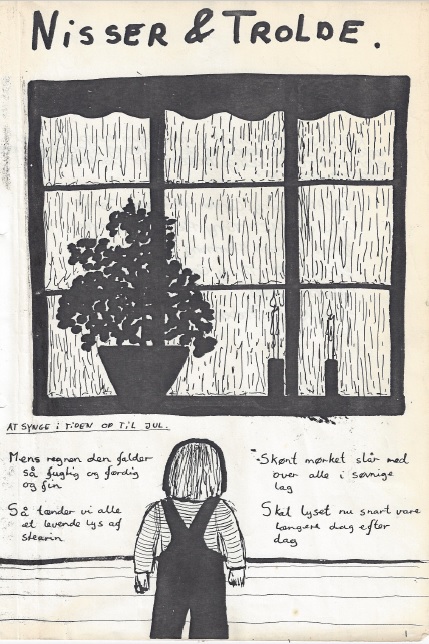 NISSER & TROLDE.
AT SYNGE i TiDEN OP TiL JUL.
Mens regnen den falder
så fugtig og færdig
og fin
Så tænder vi alle
et levende lys af
stearin
Skønt mørket slår ned
over alle i søvnige
lag
Skal lyset nu snart vare
længere dag efter
dag
1